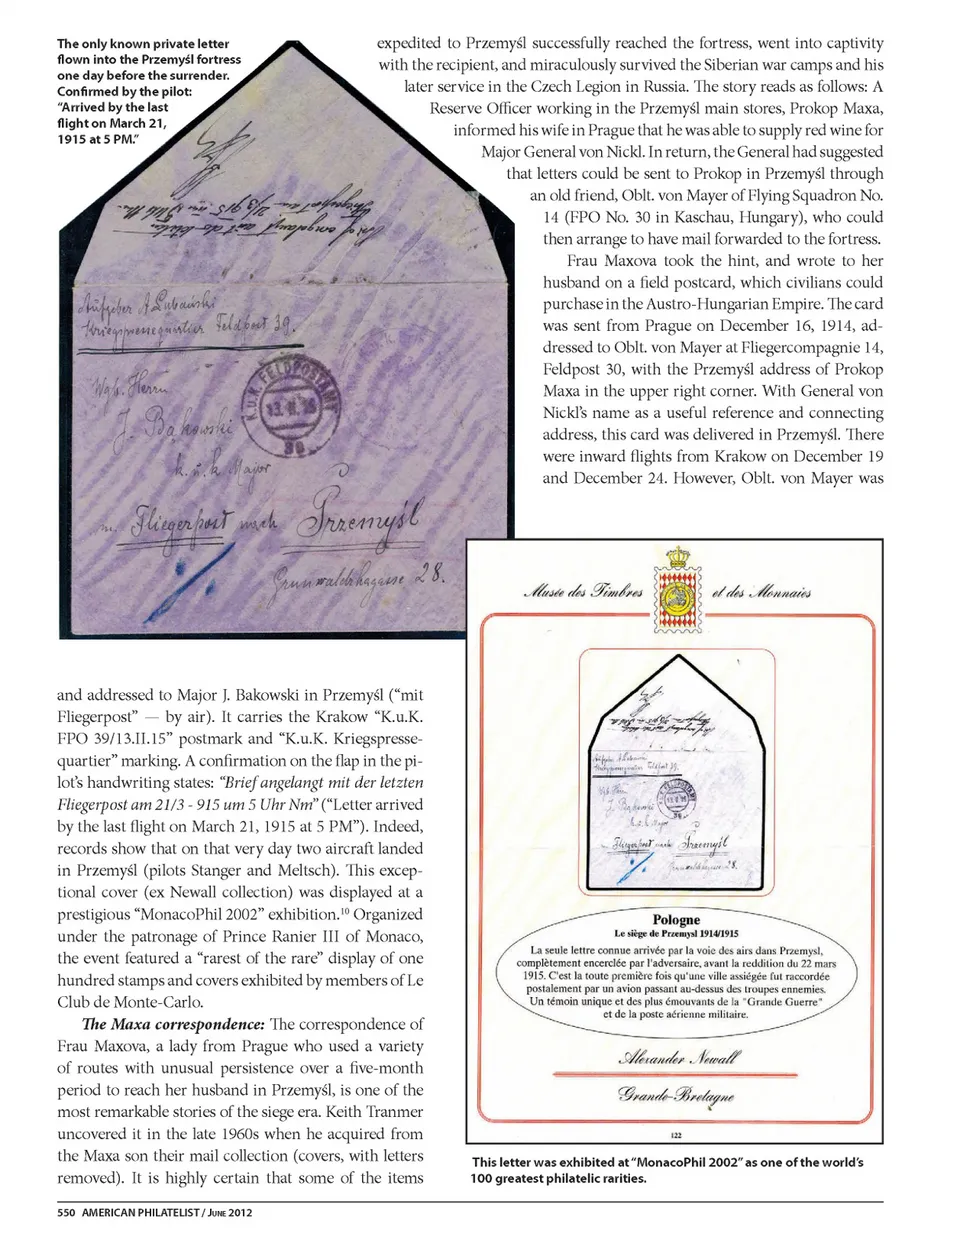 The only known private letter
flown into the Przemyśl fortress
one day before the surrender.
Confirmed by the pilot:
“Arrived by the last
flight on March 21,
1915 at 5 PM.”
Aufgeber A Lubański
Kriegspressequartier Feldpost 39.
K.u.K. FELDPOSTAMT
13.II.15
39
Wgb. Herrn
J. Bąkowski
k. u. k Major
m. Fliegerpost nach Przemyśl
Grunwaldzkagasse 28.
expedited to Przemyśl successfully reached the fortress, went into captivity
with the recipient, and miraculously survived the Siberian war camps and his
later service in the Czech Legion in Russia. The story reads as follows: A
Reserve Officer working in the Przemyśl main stores, Prokop Maxa,
informed his wife in Prague that he was able to supply red wine for
Major General von Nickl. In return, the General had suggested
that letters could be sent to Prokop in Przemyśl through
an old friend, Oblt. von Mayer of Flying Squadron No.
14 (FPO No. 30 in Kaschau, Hungary), who could
then arrange to have mail forwarded to the fortress.
Frau Maxova took the hint, and wrote to her
husband on a field postcard, which civilians could
purchase in the Austro-Hungarian Empire. The card
was sent from Prague on December 16, 1914, ad-
dressed to Oblt. von Mayer at Fliegercompagnie 14,
Feldpost 30, with the Przemyśl address of Prokop
Maxa in the upper right corner. With General von
Nickl’s name as a useful reference and connecting
address, this card was delivered in Przemyśl. There
were inward flights from Krakow on December 19
and December 24. However, Oblt. von Mayer was
and addressed to Major J. Bakowski in Przemyśl (“mit
Fliegerpost” — by air). It carries the Krakow “K.u.K.
FPO 39/13.II.15” postmark and “K.u.K. Kriegspresse-
quartier” marking. A confirmation on the flap in the pi-
lot’s handwriting states: “Brief angelangt mit der letzten
Fliegerpost am 21/3 - 915 um 5 Uhr Nm” (“Letter arrived
by the last flight on March 21, 1915 at 5 PM”). Indeed,
records show that on that very day two aircraft landed
in Przemyśl (pilots Stanger and Meltsch). This excep-
tional cover (ex Newall collection) was displayed at a
prestigious “MonacoPhil 2002” exhibition.¹⁰ Organized
under the patronage of Prince Ranier III of Monaco,
the event featured a “rarest of the rare” display of one
hundred stamps and covers exhibited by members of Le
Club de Monte-Carlo.
The Maxa correspondence: The correspondence of
Frau Maxova, a lady from Prague who used a variety
of routes with unusual persistence over a five-month
period to reach her husband in Przemyśl, is one of the
most remarkable stories of the siege era. Keith Tranmer
uncovered it in the late 1960s when he acquired from
the Maxa son their mail collection (covers, with letters
removed). It is highly certain that some of the items
Musée des Timbres et des Monnaies
Aufgeber A Lubański
Kriegspressequartier Feldpost 39.
Wgb. Herrn
J. Bąkowski
k. u. k Major
m. Fliegerpost nach Przemyśl
Grunwaldzkagasse 28.
Pologne
Le siège de Przemysl 1914/1915
La seule lettre connue arrivée par la voie des airs dans Przemysl,
complètement encerclée par l'adversaire, avant la reddition du 22 mars
1915. C'est la toute première fois qu'une ville assiégée fut raccordée
postalement par un avion passant au-dessus des troupes ennemies.
Un témoin unique et des plus émouvants de la "Grande Guerre"
et de la poste aérienne militaire.
Alexander Newall
Grande-Bretagne
122
This letter was exhibited at “MonacoPhil 2002” as one of the world’s
100 greatest philatelic rarities.
550 AMERICAN PHILATELIST / JUNE 2012